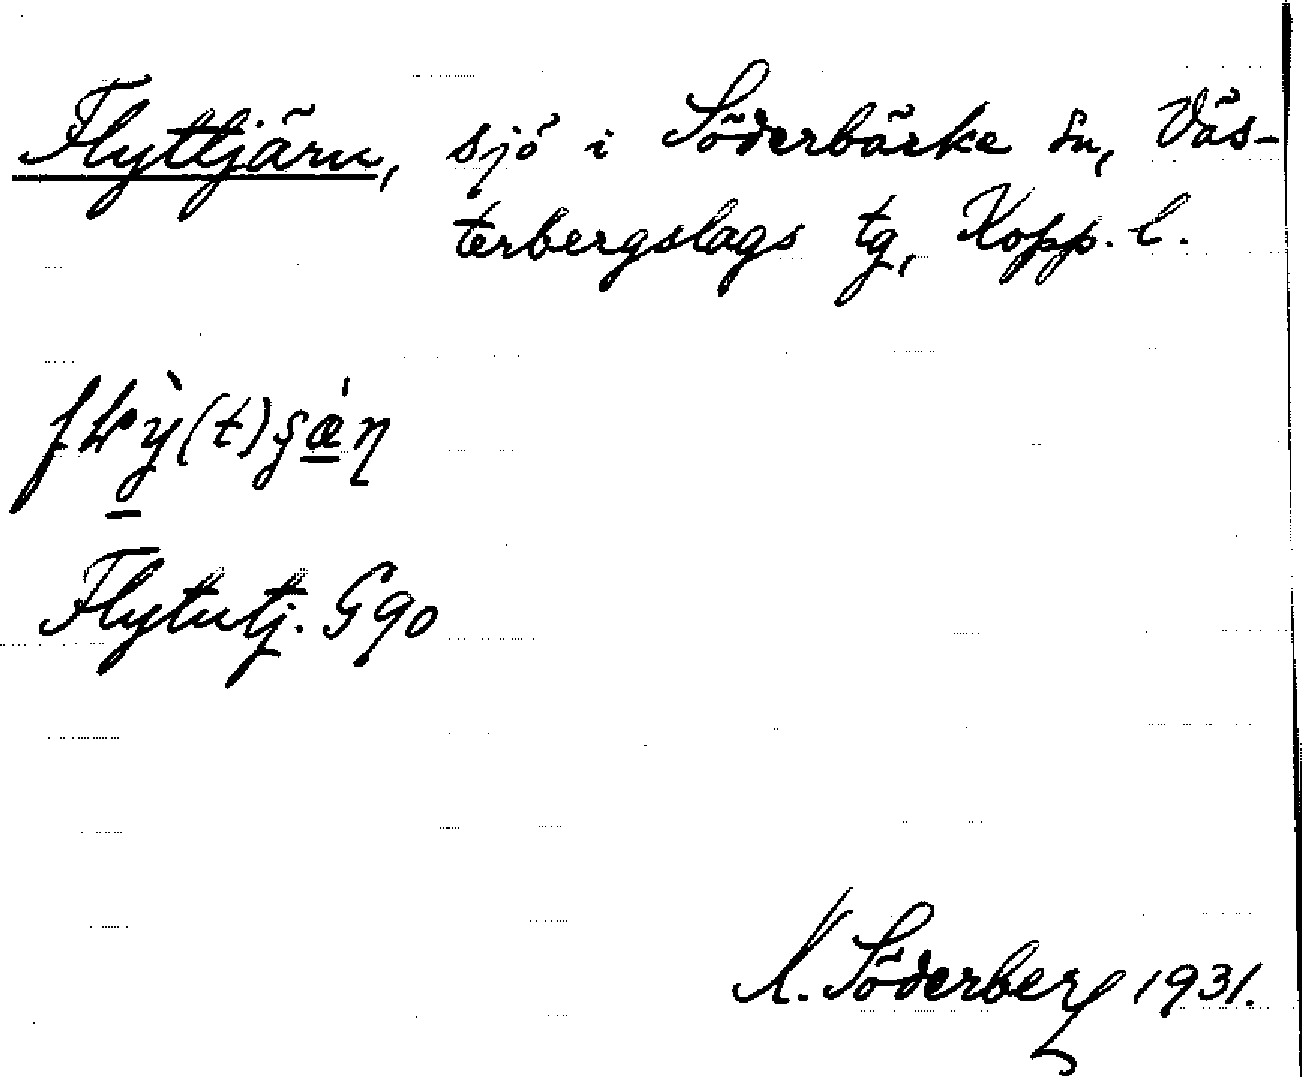 Flyttjärn, sjö i Söderbärke sn, Väs-
terbergslags tg, Kopp. l.
Flytutj. G90
Söderberg 1931.